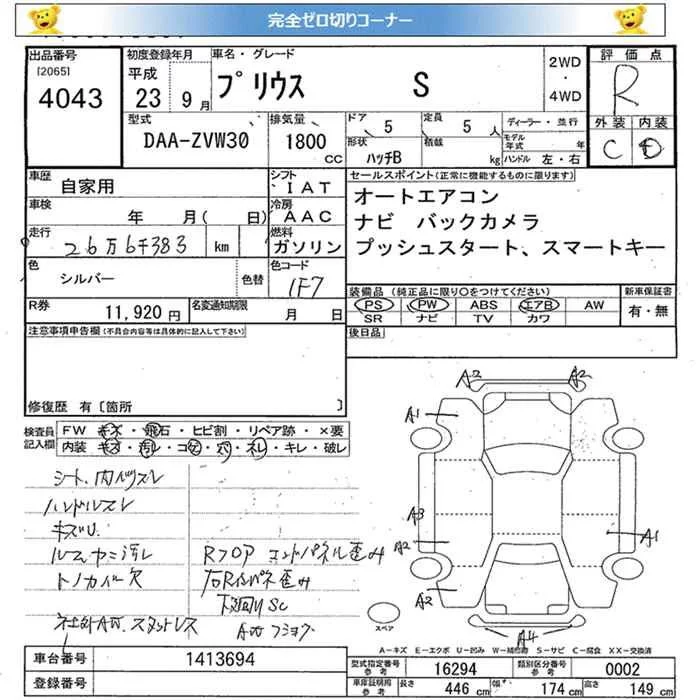 完全ゼロ切りコーナー
出品番号
[2065]
4043
初度登録年月
平成
23 9月
車名・グレード
プリウス S
2WD
・
4WD
評価点
R
外装 内装
C D
型式
DAA-ZVW30
排気量
1800
CC
ドア 5
定員 5 人
形状
ハッチB
積載
kg
ディーラー・並行
モデル年式 年
ハンドル 左・右
車歴
自家用
シフト
IAT
車検
年 月( 日)
冷房
AAC
走行
26万6千383 km
燃料
ガソリン
色
シルバー
色替
色コード
1F7
R券
11,920 円
名変通知期限
月 日
セールスポイント(正常に機能するものに限ります)
オートエアコン
ナビ バックカメラ
プッシュスタート、スマートキー
装備品 (純正品に限り○をつけてください)
PS PW ABS エアB AW
SR ナビ TV カワ
新車保証書
有・無
後日品
注意事項申告欄(不具合内容等は具体的に記入して下さい)
修復歴 有〔箇所 〕
検査員記入欄
FW キズ・飛石・ヒビ割・リペア跡・×要
内装 キズ・汚レ・コゲ・穴・ネレ・キレ・破レ
シート、内バツスレ
ハンドルスレ
キズU
ルームヤニ汚レ
トノカバー欠
社外AW、スタッドレス
Rフロア エンドパネル歪み
右Rインパネ歪み
下廻りSC
A2
A2
A1
A3
A2
A2
A1
A4
スペア
A-キズ E-エクボ U-凹み W-補修跡 S-サビ C-腐食 XX-交換済
車台番号
1413694
登録番号
型式指定番号
参考
16294
類別区分番号
参考
0002
車庫証明用
参考
長さ 446 cm
幅 174 cm
高さ 149 cm